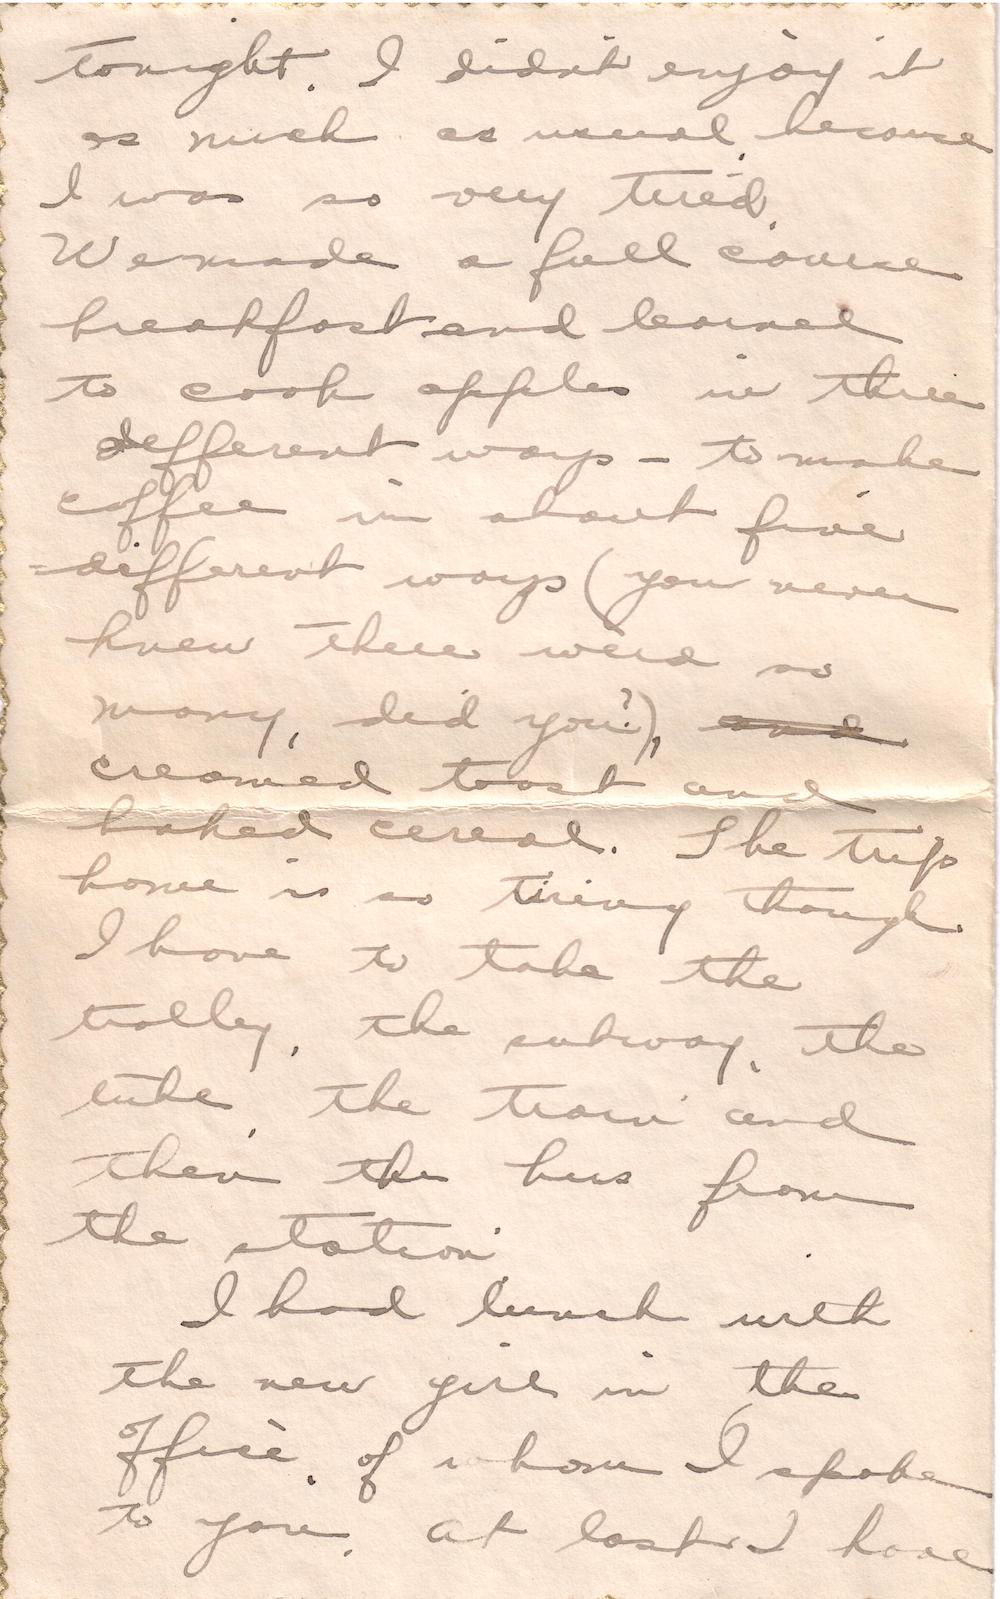 tonight. I didn't enjoy it
as much as usual, because
I was so very tired.
We made a full course
breakfast and learned
to cook apples in three
different ways - to make
coffee in about five
different ways (you never
knew there were so
many, did you?), and
creamed toast and
baked cereal. The trip
home is so tiring though.
I have to take the
trolley, the subway, the
tube, the train and
then the bus from
the station.
I had lunch with
the new girl in the
office, of whom I spoke
to you. At last I have